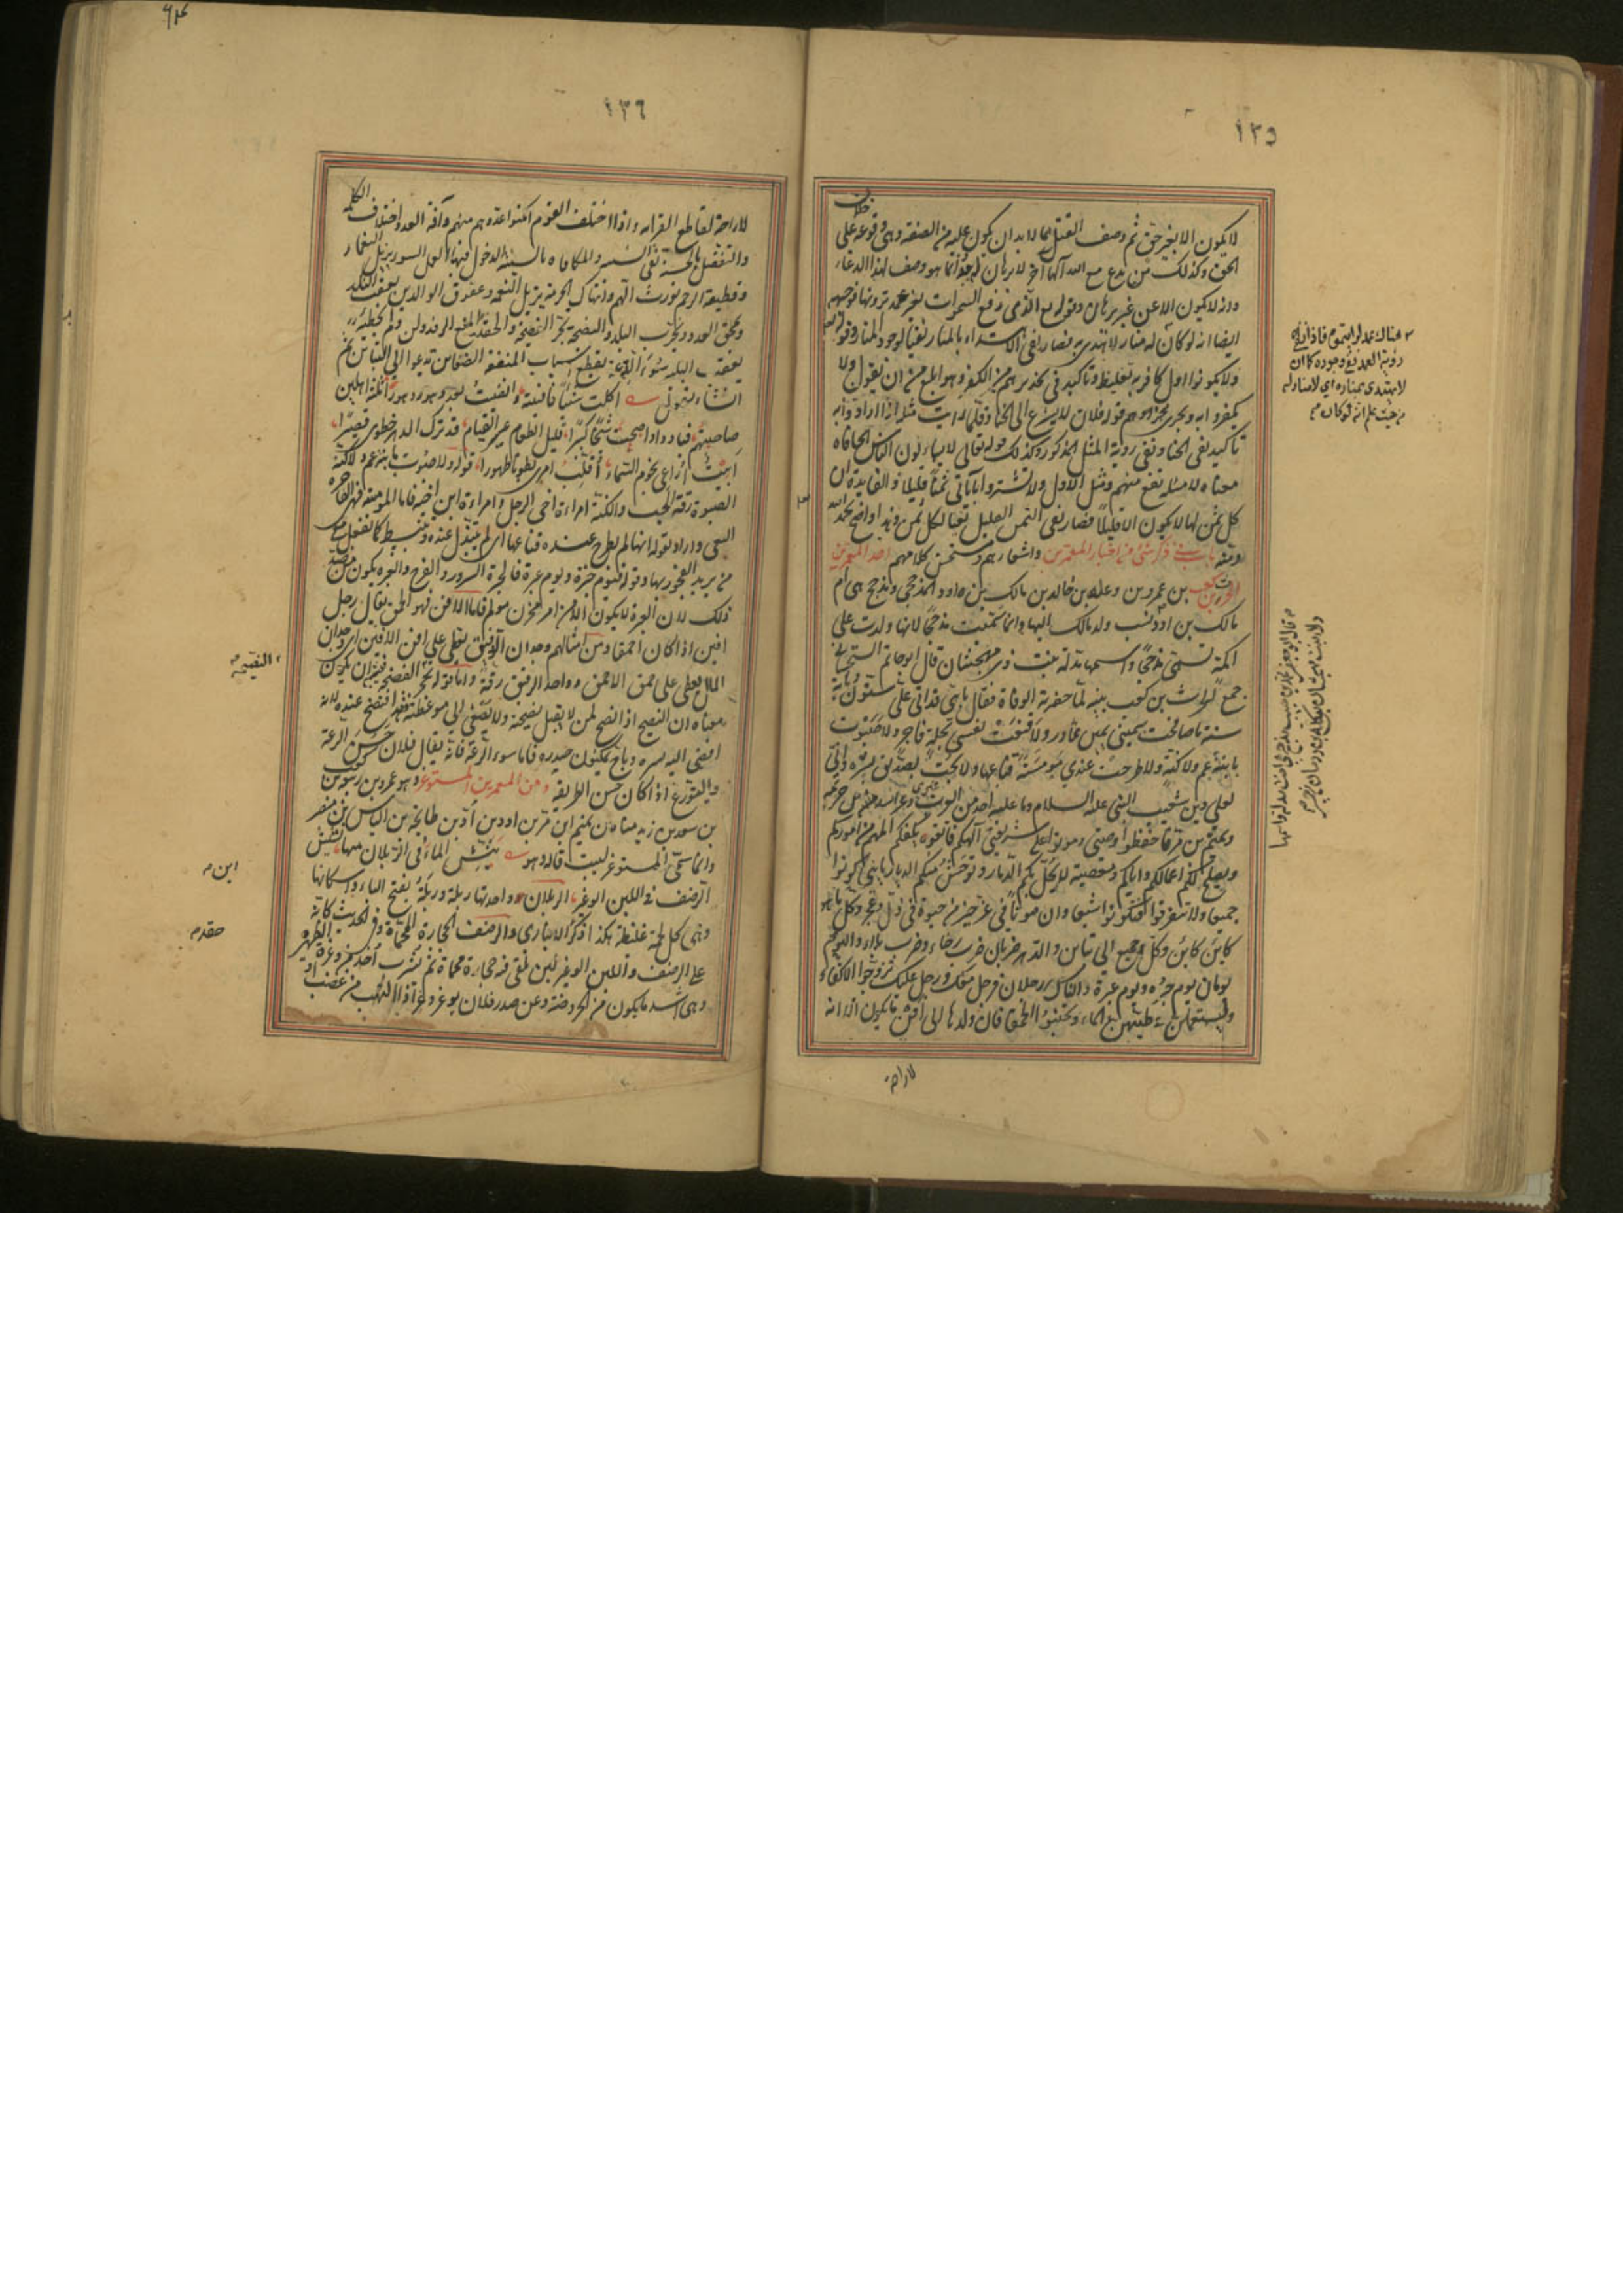 ١٣٥
لا يكون الا بغير حق ثم وصف القتل بما لا بد ان يكون عليه من الصفة وهى وقوعه على خلاف
الحق وكذلك من يدع مع الله آلها آخر لا برهان له به انما هو وصف لهذا الدعاء
وانه لا يكون الا عن غير برهان وقوله تع الذى رفع السموات بغير عمد ترونها فوجهه
ايضا انه لو كان له منار لاهتدى به فصار نفى الاهتداء بالمنار نفيا لوجود المنار وقوله تع
ولا تكونوا اول كافر به تغليظ وتاكيد فى تحذيرهم من الكفر وهو ابلغ من ان يقول ولا
تكفروا به ويجرى مجراه هم قوله فلان لا يسرع الى الخنا وقلما رايت مثله اذا اراد وا به
تاكيد نفى الخنا ونفى روية المثل المذكور وكذلك قوله تعالى لا يسالون الناس الحافا
معناه لا مسئلة تقع منهم ومثل الاول ولا تشتروا بآياتى ثمنا قليلا والفايدة ان
كل ثمن لها لا يكون الا قليلا فصار نفى الثمن القليل نفيا لكل ثمن وهذا واضح بحمد الله
ومنه باب فى ذكر شئ من اخبار المعمرين واشعارهم ومستحسن كلامهم احد المعمرين
الحرث بن كعب بن عمرو بن وعله بن خالد بن مالك بن ادد المذحجى ومذحج هى ام
مالك بن ادد نسب ولد مالك اليها وانما سميت مذحجا لانها ولدت على
اكمة تسمى مذحجا واسمها مدلة بنت ذى مهجشان قال ابو حاتم السجستانى
جمع الحرث بن كعب بنيه لما حضرته الوفاة فقال يا بنى قد اتى على ستون وماية
سنة ما صافحت بيمينى يمين غادر ولا قنعت نفسى بخلة فاجر ولا صبوت
بابنة عم ولا كنة ولا طرحت عندى مومسة قناعها ولا بحت لصديق بسر وانى
لعلى دين شعيب النبى عليه السلام وما عليه احد من العرب غيرى وغير اسد بن خزيمة
وتميم بن مر فاحفظوا وصيتى وموتوا على شريعتى آلهكم فاتقوه يكفكم المهم من اموركم
ويصلح لكم اعمالكم واياكم ومعصيته لا يحل بكم الدمار وتوحش منكم الديار يا بنى كونوا
جميعا ولا تتفرقوا فتكونوا شيعا وان موتا فى عز خير من حيوة فى ذل وعجز وكل ما هو
كاين كاين وكل جميع الى تباين والدهر ضربان ضرب رخاء وضرب بلاء واليوم
يومان يوم حبرة ويوم عبرة والناس رجلان فرجل معك ورجل عليك تزوجوا الاكفاء
وليستعملن فى طيبهن الماء وتجنبوا الحمقاء فان ولدها الى افن ما يكون الا انه
لا راحة
هناك عمد لرايتموه فاذا نفى
رؤية العمد نفى وجوده كما ان
لا يهتدى بمناره اى لا منار له
من حيث علم انه لو كان
١٣٦
لا راحة لقاطع القرابة واذا اختلف القوم امكنوا عدوهم منهم وآفة العدد اختلاف الكلمة
والتفضل بالحسنة تقى السيئة والمكافاه بالسيئة الدخول فيها العمل السوء يزيل النعماء
وقطيعة الرحم تورث الهم وانتهاك الحرمة يزيل النعمة وعقوق الوالدين يعقب النكد
ويمحق العدد ويخرب البلد والنصيحة تجر الفضيحة والحقد يمنع الرفد ولزوم الخطيئة
يعقب البلية وسوء الرعة يقطع اسباب المنفعة الضغاين تدعوا الى التباين ثم
انشاء يقول اكلت شبابى فافنيته وافنيت بعد دهور دهورا ثلثة اهلين
صاحبتهم فبادوا واصبحت شيخا كبيرا قليل الطعام عسير القيام قد ترك الدهر خطوى قصيرا
ابيت اراعى نجوم السماء اقلب امرى بطونا ظهورا قوله ولا صبوت بابنة عم ولا كنة
الصبوة رقة الحب والكنة امراءة اخى الرجل وامراءة ابن اخيه فاما المومسة فهى الفاجرة
البغى واراد بقوله انها لم تطرح عنده قناعها اى لم تتبذل عنده وتنبسط كما تفعل مع
من يريد الفجور بها وقوله فيوم حبرة ويوم عبرة فالحبرة السرور والفرح والعبرة يكون من ضد
ذلك لان العبرة لا يكون الا من امر محزن مولم فاما الافن فهو الحمق يقال رجل
افين اذا كان احمقا ومن امثالهم وجدان الرقين يغطى على افن الافين اى وجدان
المال يغطى على حمق الاحمق وواحد الرقين رقة واما قوله تجر الفضيحة فيشبه ان يكون
معناه ان النصيح اذا نصح لمن لا يقبل نصيحته ولا يصغى الى موعظته فقد افتضح عنده لانه
افضى اليه بسره وباح بمكنون صدره فاما سوء الرعة فانه يقال فلان حسن الرعة
والتورع اذا كان حسن الطريقه ومن المعمرين المستوغر وهو عمرو بن ربيعة بن كعب
بن سعد بن زيد مناة بن تميم ابن مر بن اد بن طابخة بن الياس بن مضر
وانما سمى المستوغر لبيت قاله وهو ينش الماء فى الربلات منها نشيش
الرضف فى اللبن الوغير الربلات واحدتها ربلة وربلة بفتح الباء واسكانها
وهى كل لحمة غليظة هكذا ذكر الانبارى والرضف الحجارة المحماة وفى الحديث كانه
على الرضف واللبن الوغير لبن تلقى فيه حجارة محماة ثم يشرب اخذ من وغرة الظهيرة
وهى اشد ما يكون من الحر ومنه وغر صدر فلان يوغر وغرا اذا التهب من غضب او
ابن
حقد